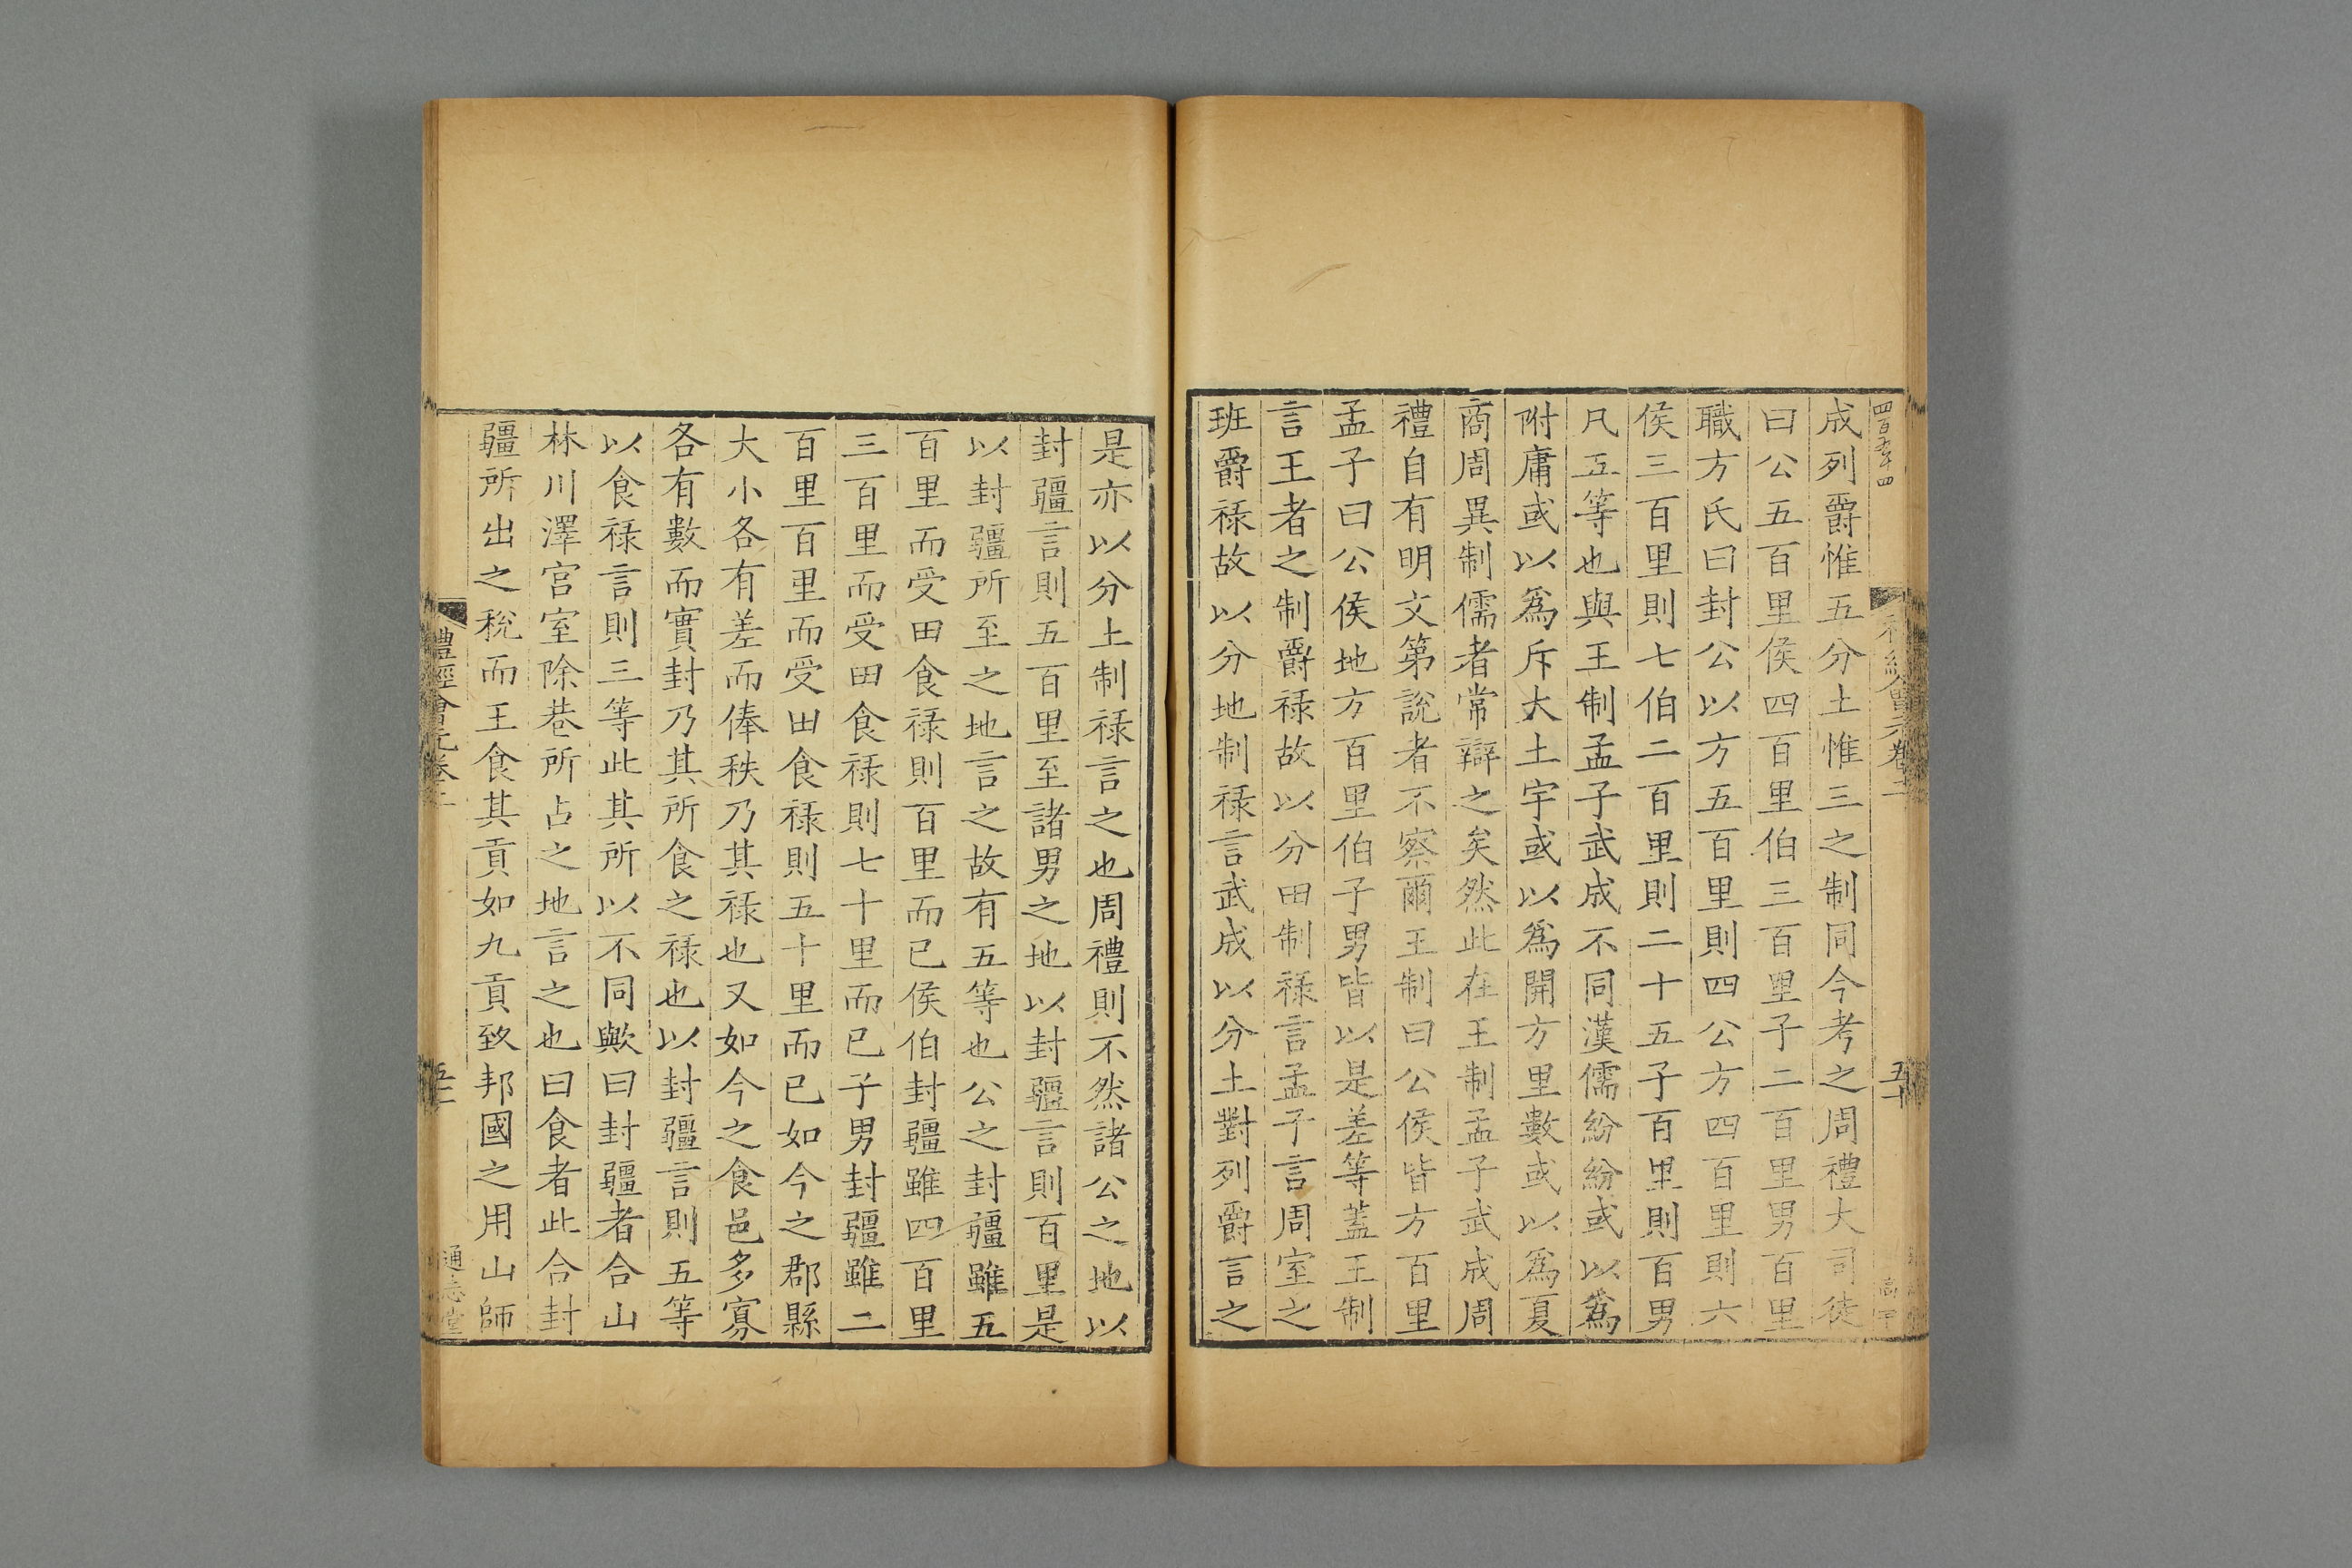 成列爵惟五分土惟三之制同今考之周禮大司徒
曰公五百里侯四百里伯三百里子二百里男百里
職方氏曰封公以方五百里則四公方四百里則六
侯三百里則七伯二百里則二十五子百里則百男
凡五等也與王制孟子武成不同漢儒紛紛或以爲
附庸或以爲斥大土宇或以爲開方里數或以爲夏
商周異制儒者常辯之矣然此在王制孟子武成周
禮自有明文第說者不察爾王制曰公侯皆方百里
孟子曰公侯地方百里伯子男皆以是差等蓋王制
言王者之制爵祿故以分田制祿言孟子言周室之
班爵祿故以分地制祿言武成以分土對列爵言之
是亦以分土制祿言之也周禮則不然諸公之地以
封疆言則五百里至諸男之地以封疆言則百里是
以封疆所至之地言之故有五等也公之封疆雖五
百里而受田食祿則百里而已侯伯封疆雖四百里
三百里而受田食祿則七十里而已子男封疆雖二
百里百里而受田食祿則五十里而已如今之郡縣
大小各有差而俸秩乃其祿也又如今之食邑多寡
各有數而實封乃其所食之祿也以封疆言則五等
以食祿言則三等此其所以不同歟曰封疆者合山
林川澤宮室除巷所占之地言之也曰食者此合封
疆所出之稅而王食其貢如九貢致邦國之用山師
禮經會元卷二
通志堂